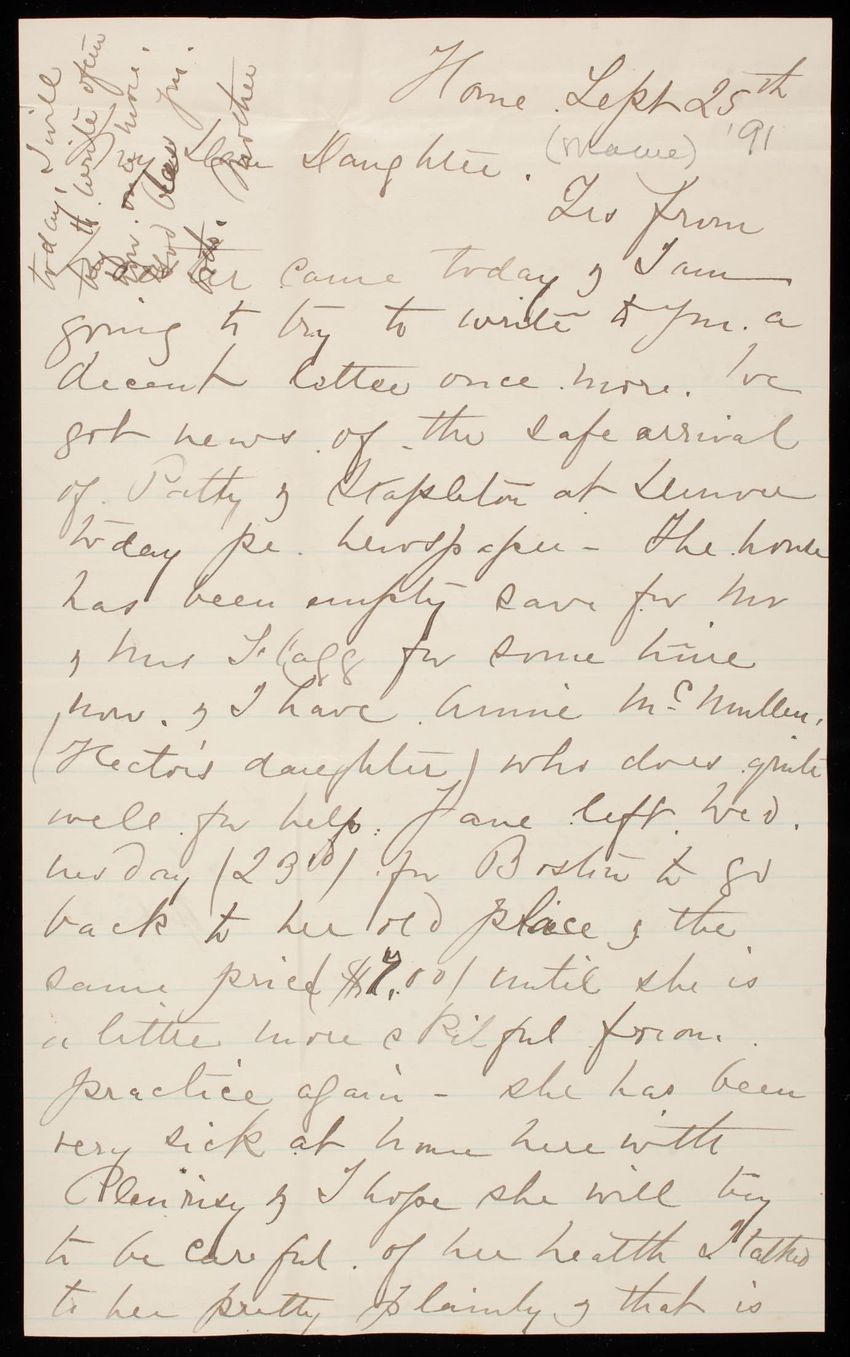 Home Sept 25th
'91
My Dear Daughter. (Mame)
Yrs from
came today & I am
going to try to write to you a
decent letter once more. I've
got news of the safe arrival
of Patty & Stapleton at Denver
today pe. newspaper – The house
has been empty save for Mr
& Mrs Flagg for some time
now. & I have Annie McMullen,
(Hector's daughter) who does quite
well for help. Jane left Wed.
nesday (23rd) for Boston to go
back to her old place & the
same price ($7.00) until she is
a little more skilful from
practice again – she has been
very sick at home here with
Pleurisy & I hope she will try
to be careful of her health I talked
to her pretty plainly & that is
today, I will
try to write often
now. once more.
God bless you
Mother